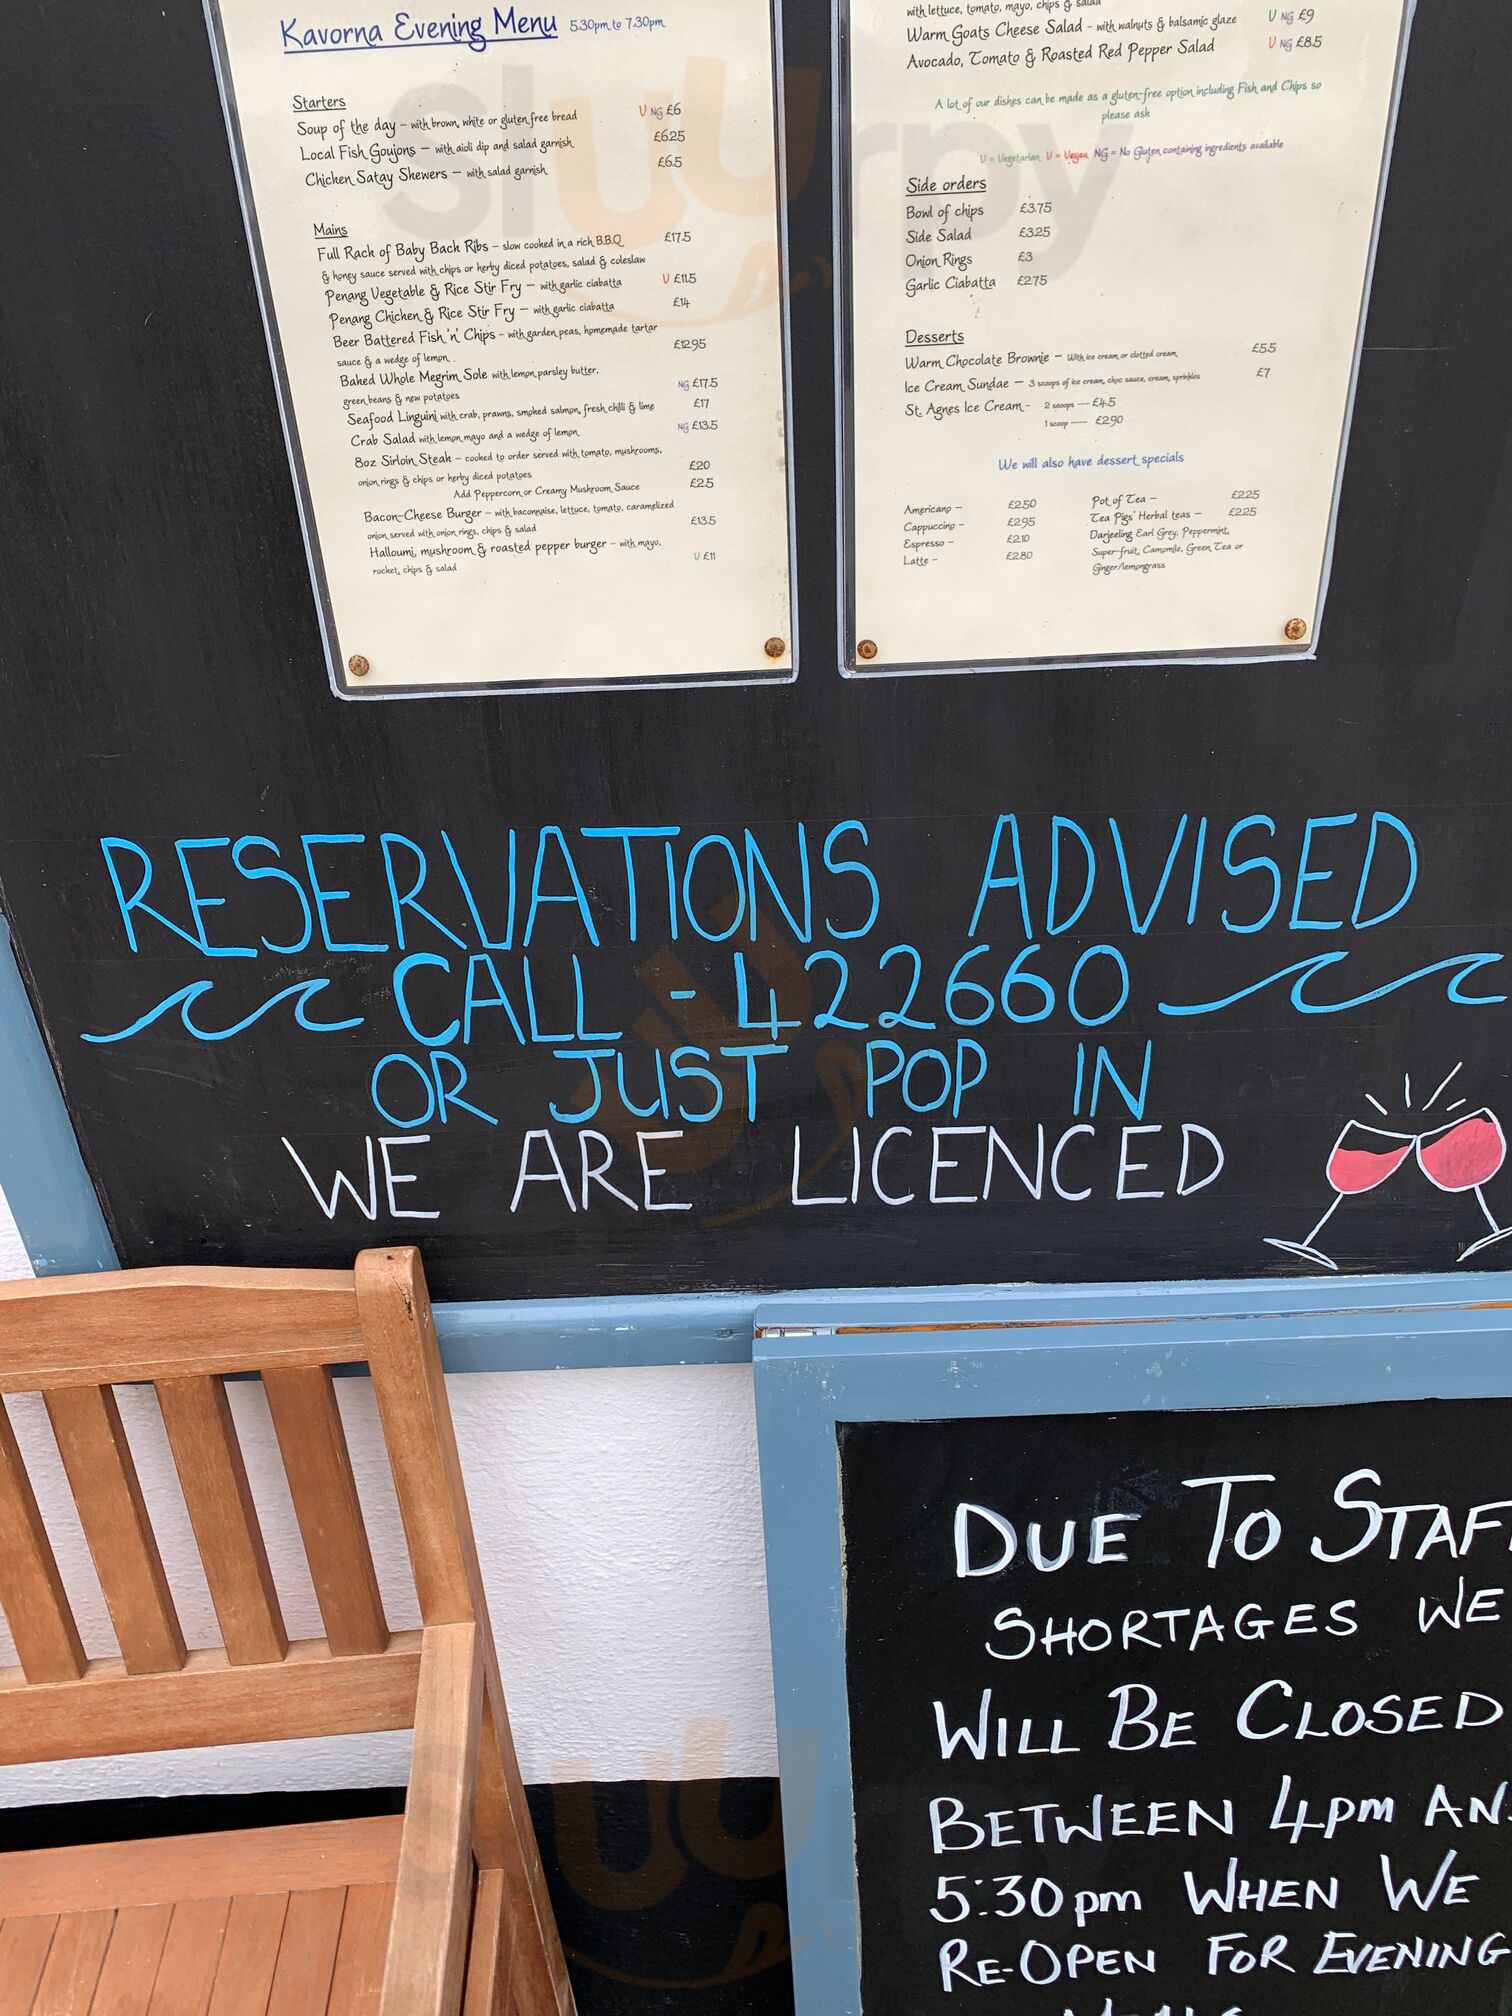 Kavorna Evening Menu 5.30pm to 7.30pm
Starters
Soup of the day – with brown, white or gluten free bread V NG £6
Local Fish Goujons – with aioli dip and salad garnish £6.25
Chicken Satay Skewers – with salad garnish £6.5
Mains
Full Rack of Baby Back Ribs – slow cooked in a rich B.B.Q £17.5
& honey sauce served with chips or herby diced potatoes, salad & coleslaw
Penang Vegetable & Rice Stir Fry – with garlic ciabatta V £11.5
Penang Chicken & Rice Stir Fry – with garlic ciabatta £14
Beer Battered Fish 'n' Chips – with garden peas, homemade tartar
sauce & a wedge of lemon. £12.95
Baked Whole Megrim Sole with lemon, parsley butter,
green beans & new potatoes NG £17.5
Seafood Linguini with crab, prawns, smoked salmon, fresh chilli & lime £17
Crab Salad with lemon mayo and a wedge of lemon NG £13.5
8oz Sirloin Steak – cooked to order served with tomato, mushrooms,
onion rings & chips or herby diced potatoes £20
Add Peppercorn or Creamy Mushroom Sauce £2.5
Bacon-Cheese Burger – with baconnaise, lettuce, tomato, caramelized
onion served with onion rings, chips & salad £13.5
Halloumi, mushroom & roasted pepper burger – with mayo,
rocket, chips & salad V £11
with lettuce, tomato, mayo, chips & salad
Warm Goats Cheese Salad – with walnuts & balsamic glaze V NG £9
Avocado, Tomato & Roasted Red Pepper Salad V NG £8.5
A lot of our dishes can be made as a gluten-free option including Fish and Chips so
please ask
V = Vegetarian V = Vegan NG = No Gluten containing ingredients available
Side orders
Bowl of chips £3.75
Side Salad £3.25
Onion Rings £3
Garlic Ciabatta £2.75
Desserts
Warm Chocolate Brownie – With ice cream or clotted cream £5.5
Ice Cream Sundae – 3 scoops of ice cream, choc sauce, cream, sprinkles £7
St. Agnes Ice Cream – 2 scoops — £4.5
1 scoop — £2.90
We will also have dessert specials
Americano – £2.50
Cappuccino – £2.95
Espresso – £2.10
Latte – £2.80
Pot of Tea – £2.25
Tea Pigs' Herbal teas – £2.25
Darjeeling Earl Grey, Peppermint,
Super-fruit, Camomile, Green Tea or
Ginger/lemongrass
RESERVATIONS ADVISED
CALL - 422660
OR JUST POP IN
WE ARE LICENCED
DUE TO STAF
SHORTAGES WE
WILL BE CLOSED
BETWEEN 4pm AN
5:30pm WHEN WE
RE-OPEN FOR EVENING
sluurpy